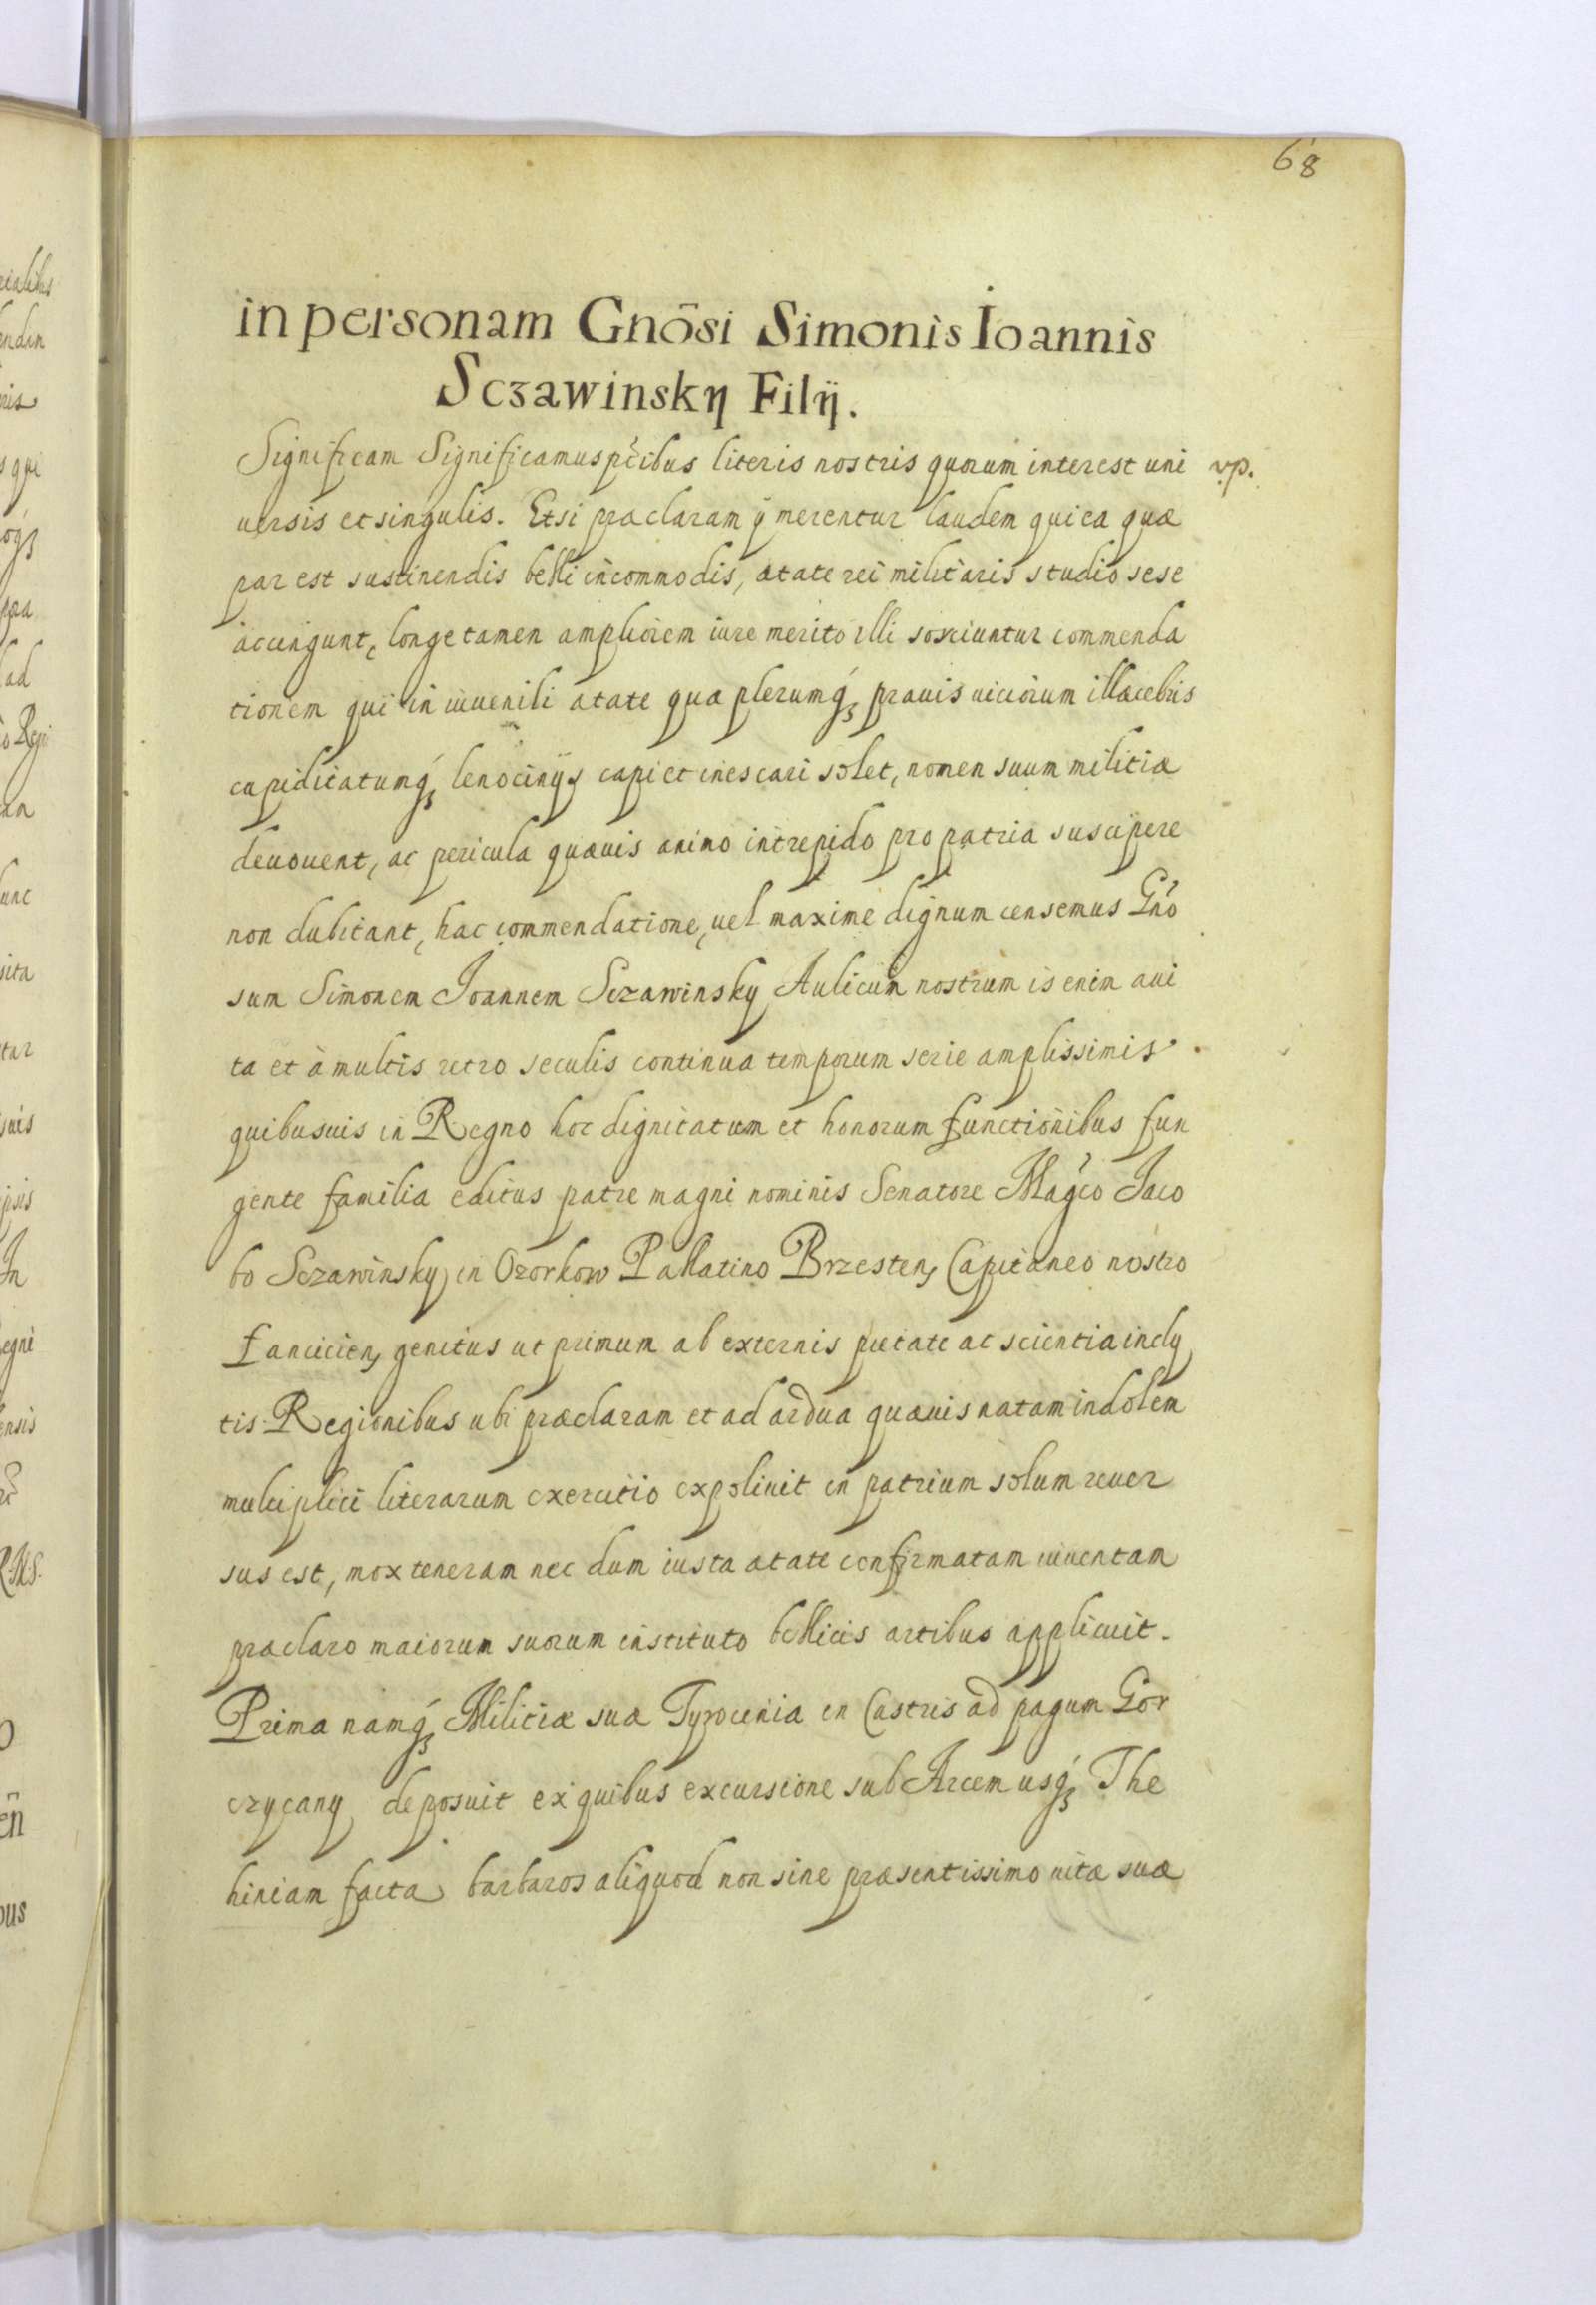 68
in personam Gnōsi Simonis Ioannis
Sczawinskÿ Filÿ.
Significam Significamus pn̄tibus literis nostris quorum interest uni
vp.
uersis et singulis. Etsi praeclaram ij merentur laudem qui ea quæ
par est sustinendis belli incommodis, ætate rei militaris studio sese
accingunt, longe tamen ampliorem iure merito illi sorciuntur commenda
tionem qui in iuuenili ætate quæ plerumq́ꝫ prauis uiciorum illæcebris
cupiditatumq́ꝫ lenocinijs capi et inescari solet, nomen suum militiæ
deuouent, ac pericula quæuis animo intrepido pro patria suscipere
non dubitant, hac commendatione, uel maxime dignum censemus Gn̄o
sum Simonem Joannem Sczawinsky Aulicum nostrum is enim aui
ta et à multis retro seculis continua temporum serie amplissimis
quibusuis in Regno hoc dignitatum et honorum functionibus fun
gente familia editus patre magni nominis Senatore Magc̄o Jaco
bo Sczawinsky in Ozorkow Pallatino Brzesten, Capitaneo nostro
Lancicien, genitus ut primum ab externis pietate ac scientia incly
tis Regionibus ubi præclaram et ad ardua quæuis natam indolem
multiplici literarum exercitio expoliuit in patrium solum reuer
sus est, mox teneram nec dum iusta ætate confirmatam iuuentam
præclaro maiorum suorum instituto bellicis artibus applicuit.
Prima namq́ꝫ Militiæ suæ Tyrocinia in Castris ad pagum Gor
czycany deposuit ex quibus excursione sub Arcem usq́ꝫ The
hiniam facta barbaros aliquod non sine præsentissimo uitæ suæ